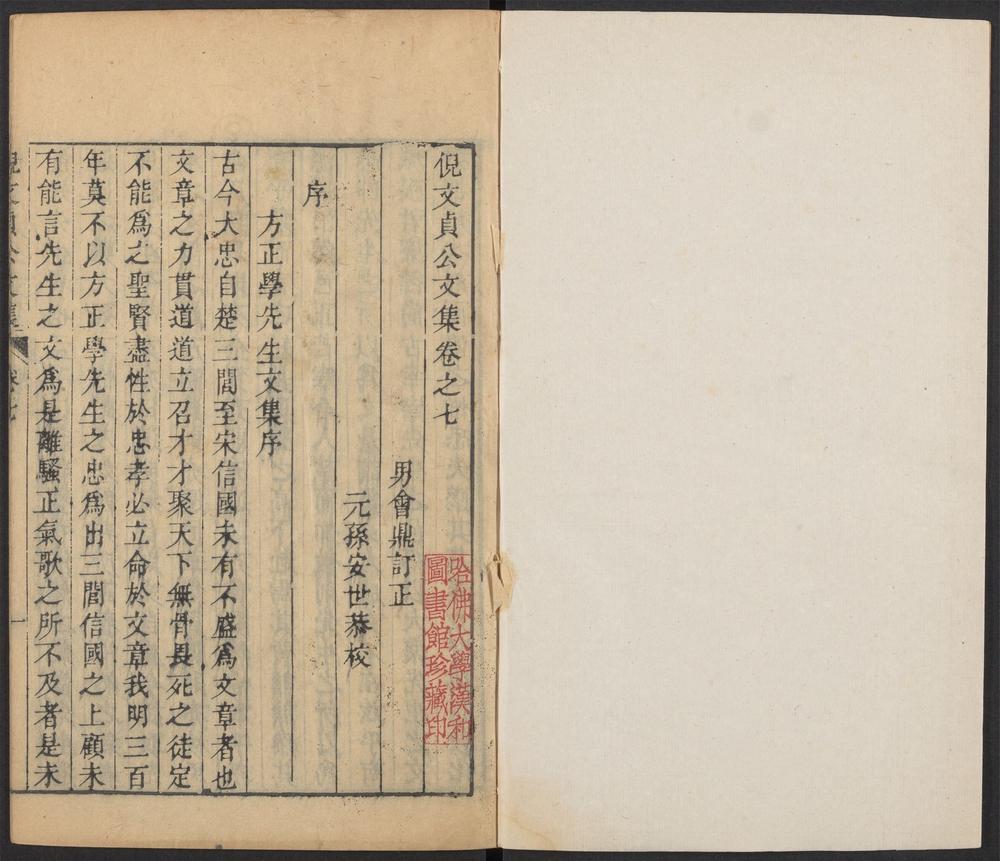 倪文貞公文集卷之七
男會鼎訂正
元孫安世恭校
序
方正學先生文集序
古今大忠自楚三閭至宋信國未有不盛爲文章者也
文章之力貫道道立召才才聚天下無骨畏死之徒定
不能爲之聖賢盡性於忠孝必立命於文章我明三百
年莫不以方正學先生之忠爲出三閭信國之上顧未
有能言先生之文爲是離騷正氣歌之所不及者是未
倪文貞公文集
卷七
一
哈佛大學漢和
圖書館珍藏印